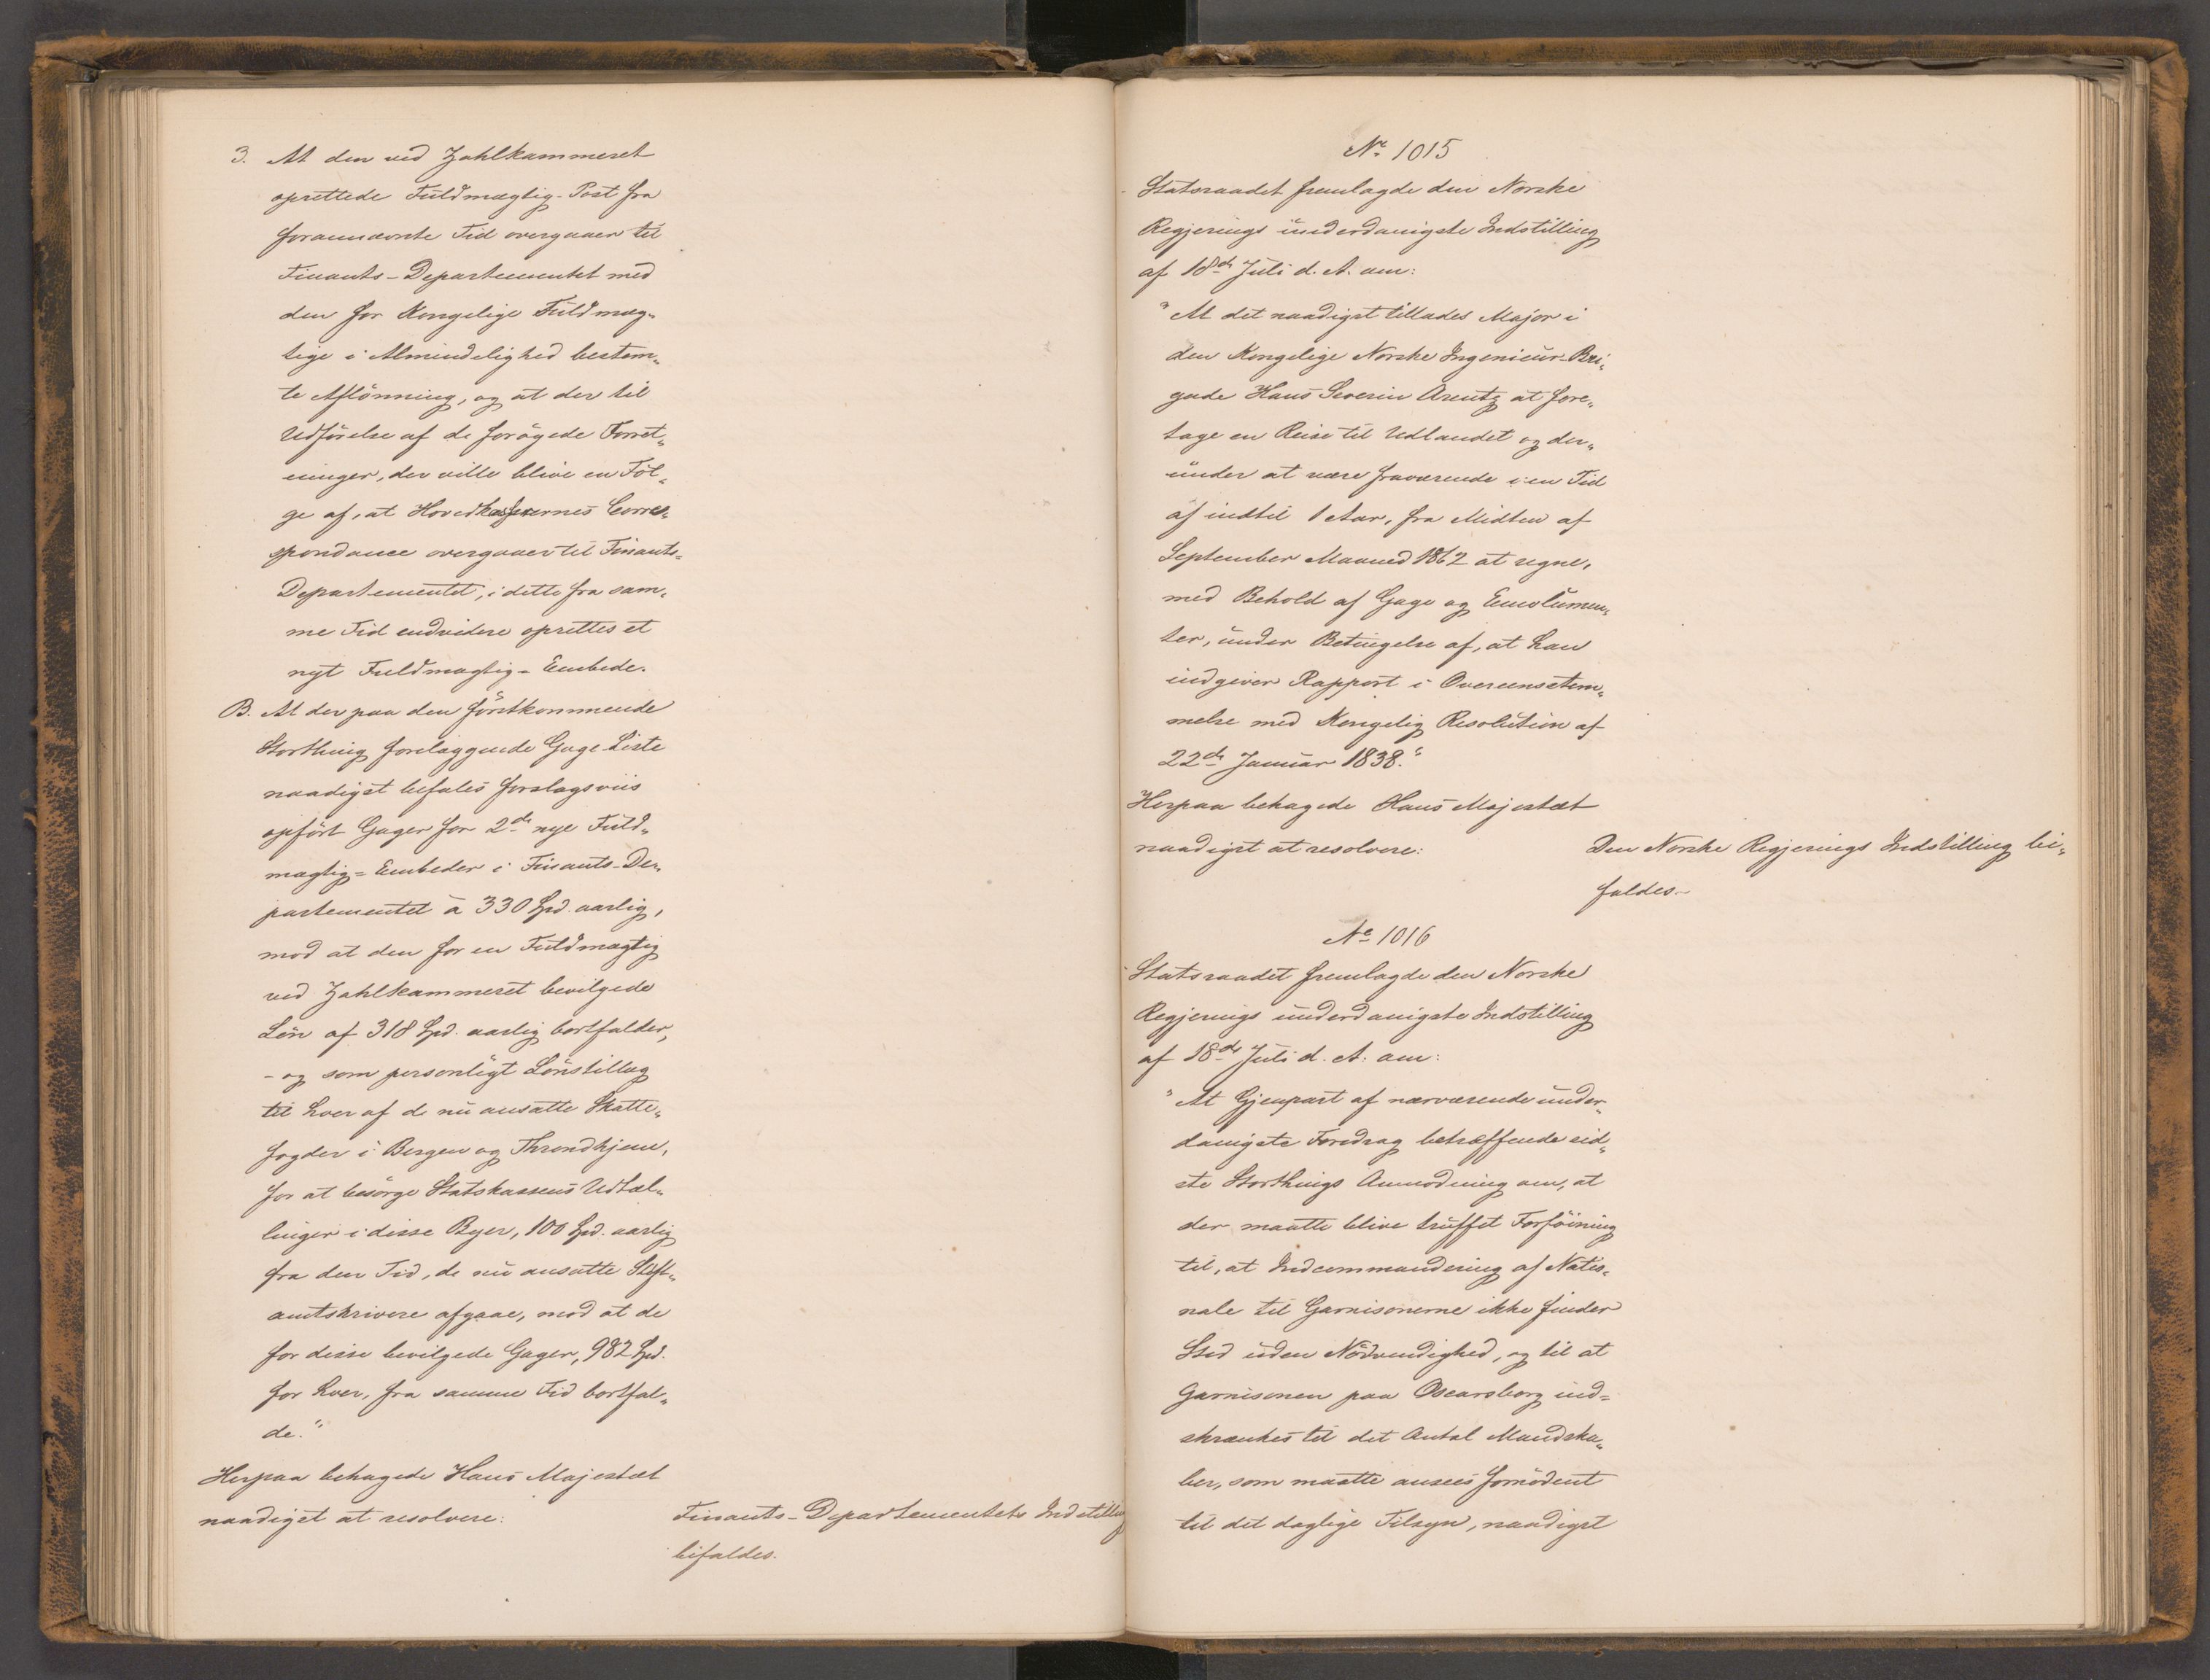 3. At den ved Zahlkammeret
oprettede Fuldmægtig-Post fra
forannævnte Tid overgaaer til
Finants-Departementet med
den for Kongelige Fuldmæg„
tige i Almindelighed bestem„
te Aflønning, og at der til
Udførelse af de forøgede Forret„
ninger, der ville blive en Føl„
ge af, at Hovedkasserernes Corre„
spondance overgaaer til Finants-
Departementet, i dette fra sam„
me Tid endvidere oprettes et
nyt Fuldmægtig-Embede.
B. At der paa den førstkommende
Storthing forelæggende Gage-Liste
naadigst befales forslagsviis
opført Gager for 2de nye Fuld„
mægtig-Embeder i Finants-De„
partementet à 330 Spd. aarlig,
mod at den for en Fuldmægtig
ved Zahlkammeret bevilgede
Løn af 318 Spd. aarlig bortfalder,
- og som personligt Lønstillæg
til hver af de nu ansatte Skatte„
fogder i Bergen og Throndhjem,
for at besørge Statskassens Udtæl„
linger i disse Byer, 100 Spd. aarlig
fra den Tid, de nu ansatte Stift„
amtskrivere afgaae, mod at de
for disse bevilgede Gager, 982 Spd.
for hver, fra samme Tid bortfal„
de."
Herpaa behagede Hans Majestæt
naadigst at resolvere:
Finants-Departementets Indstilling
bifaldes.
No 1015
Statsraadet fremlagde den Norske
Regjerings underdanigste Indstilling
af 18de Juli d. A. om:
"At det naadigst tillades Major i
den Kongelige Norske Ingenieur-Bri„
gade Hans Severin Arentz at fore„
tage en Reise til Udlandet og der„
under at være fraværende i en Tid
af indtil 1 Aar, fra Midten af
September Maaned 1862 at regne,
med Behold af Gage og Emolumen„
ter, under Betingelse af, at han
indgiver Rapport i Overeensstem„
melse med Kongelig Resolution af
22de Januar 1838."
Herpaa behagede Hans Majestæt
naadigst at resolvere:
Den Norske Regjerings Indstilling bi„
faldes.
No 1016
Statsraadet fremlagde den Norske
Regjerings underdanigste Indstilling
af 18de Juli d. A. om:
"At Gjenpart af nærværende under„
danigste Foredrag betræffende sid„
ste Storthings Anmodning om, at
der maatte blive truffet Forføining
til, at Indcommandering af Natio„
nale til Garnisonerne ikke finder
Sted uden Nødvendighed, og til at
Garnisonen paa Oscarsborg ind-
skrænkes til det Antal Mandska„
ber, som maatte ansees fornødent
til det daglige Tilsyn, naadigst